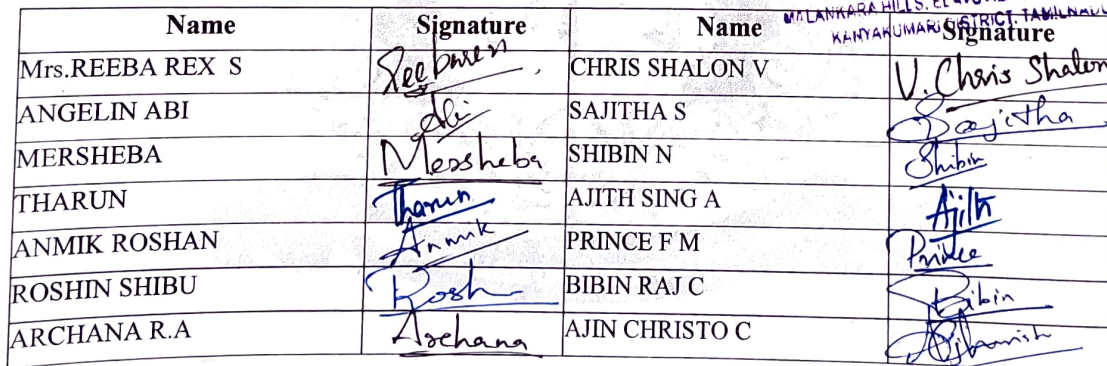 MALANKARA HILLS,
KANYAKUMARI DISTRICT. TAMILNADU
Name Signature Name Signature
Mrs.REEBA REX S Reebarex CHRIS SHALON V V. Chris Shalon
ANGELIN ABI Abi SAJITHA S Sajitha
MERSHEBA Mersheba SHIBIN N Shibin
THARUN Tharun AJITH SING A Ajith
ANMIK ROSHAN Anmik PRINCE F M Prince
ROSHIN SHIBU Rosh BIBIN RAJ C Bibin
ARCHANA R.A Archana AJIN CHRISTO C